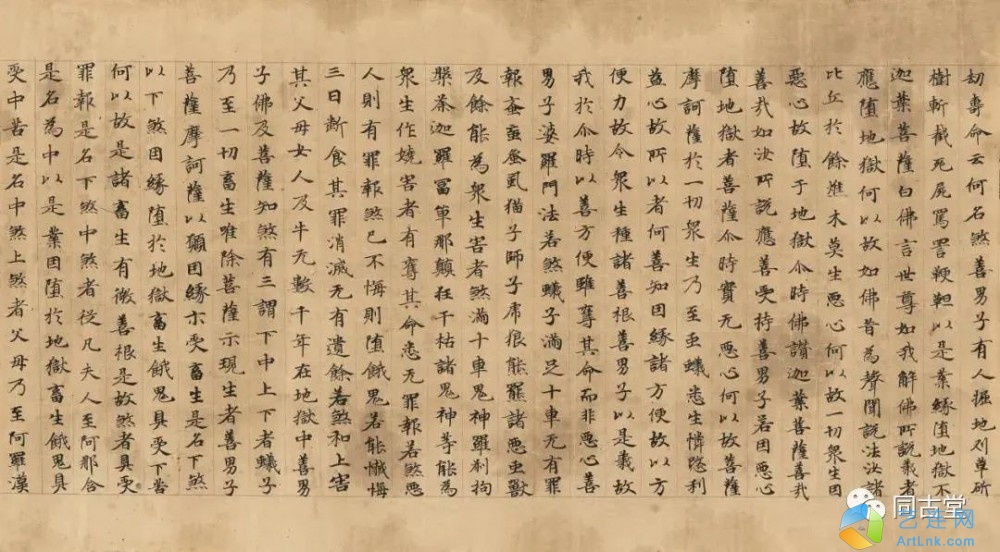 劫專命云何名煞善男子有人掘地刈草斫
樹斬截死屍罵詈鞭韃以是業緣墮地獄不
迦葉菩薩白佛言世尊如我解佛所說義者
應墮地獄何以故如佛昔為聲聞說法汝諸
比丘於餘雖木莫生惡心何以故一切眾生因
惡心故墮于地獄尒時佛讚迦葉菩薩善哉
善哉如汝所說應善受持善男子若因惡心
墮地獄者菩薩尒時實无惡心何以故菩薩
摩訶薩於一切眾生乃至虫蟻悉生憐愍利
益心故所以者何善知因緣諸方便故以方
便力故令眾生種諸善根善男子以是義故
我於尒時以善方便雖奪其命而非惡心善
男子婆羅門法若煞蟻子滿足十車无有罪
報蚉蝱蚤虱猫子師子虎狼熊羆諸惡虫獸
及餘能為眾生害者煞滿十車鬼神羅刹拘
槃荼迦羅富單那顛狂干枯諸鬼神等能為
眾生作嬈害者有奪其命悉无罪報若煞惡
人則有罪報煞已不悔則墮餓鬼若能懺悔
三日斷食其罪消滅无有遺餘若煞和上害
其父母女人及牛无數千年在地獄中善男
子佛及菩薩知煞有三謂下中上下者蟻子
乃至一切畜生唯除菩薩示現生者善男子
菩薩摩訶薩以願因緣示受畜生是名下煞
以下煞因緣墮於地獄畜生餓鬼具受下苦
何以故是諸畜生有微善根是故煞者具受
罪報是名下煞中煞者從凡夫人至阿那含
是名為中以是業因墮於地獄畜生餓鬼具
受中苦是名中煞上煞者父母乃至阿羅漢
同古堂
艺连网
ArtLnk.com